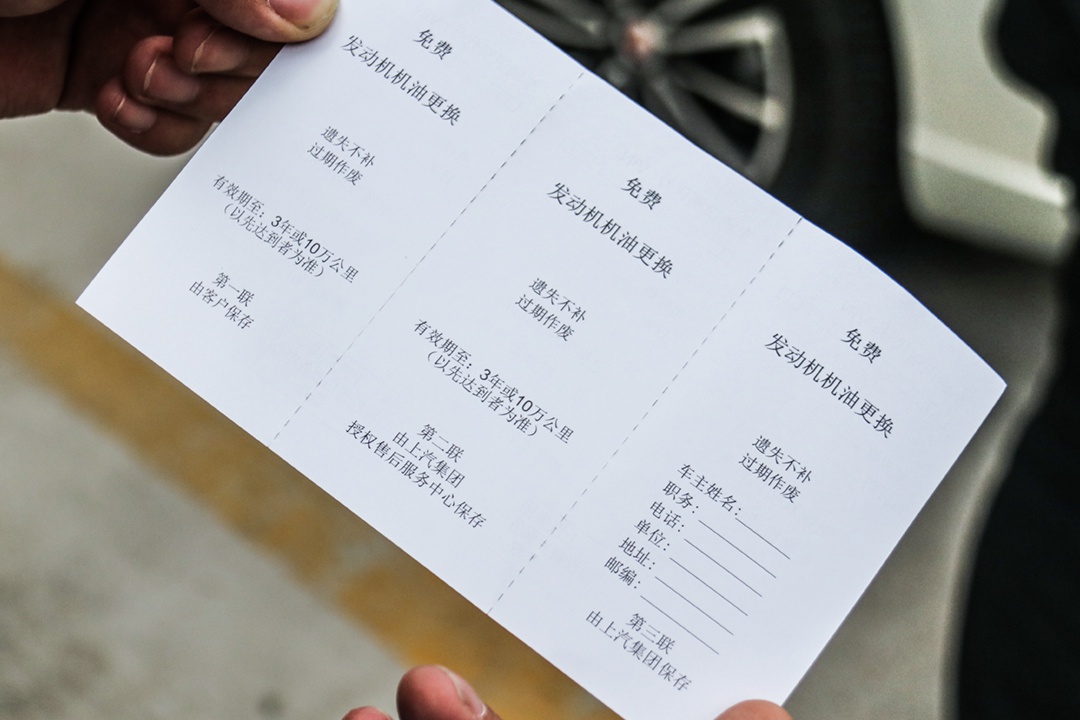 免费
发动机机油更换
遗失不补
过期作废
有效期至：3年或10万公里
（以先达到者为准）
第一联
由客户保存
免费
发动机机油更换
遗失不补
过期作废
有效期至：3年或10万公里
（以先达到者为准）
第二联
由上汽集团
授权售后服务中心保存
免费
发动机机油更换
遗失不补
过期作废
车主姓名：
职务：
电话：
单位：
地址：
邮编：
第三联
由上汽集团保存